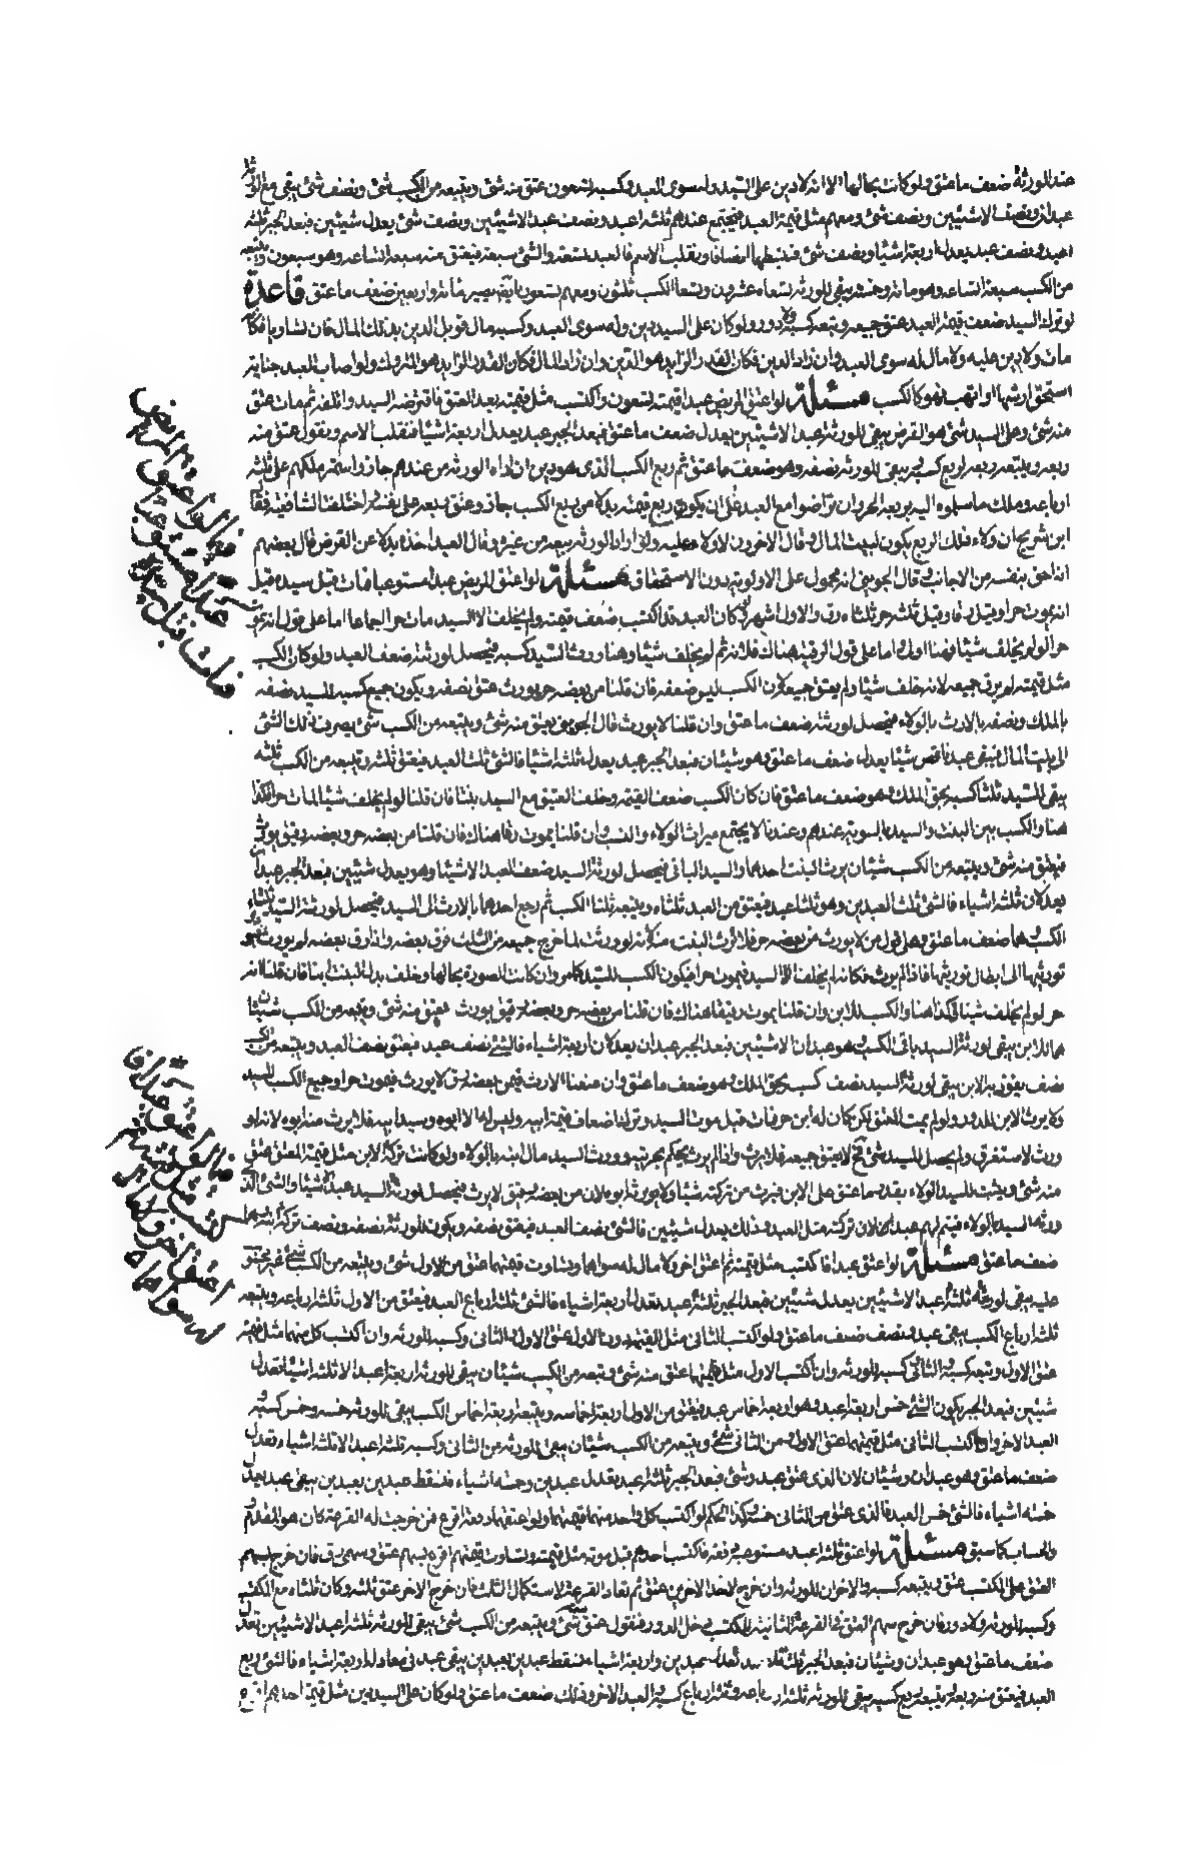 عند الورثة ضعف ما عتق ولو كانت بحالها الا انه لا دين على السيد وله سوى العبد وكسبه تسعون عتق منه شئ ويتبعه من الكسب شئ ونصف شئ يبقى مع الورثة
عبدان ونصف الا شيئين ونصف شئ ومعهم مثل قيمة العبد فيجتمع عندهم ثلثة اعبد ونصف عبد الا شيئين ونصف شئ يعدل شيئين فبعد الجبر ثلثة
اعبد ونصف عبد يعدل اربعة اشياء ونصف شئ فنبسطها انصافا ونقلب الاسم فالعبد تسعة والشئ سبعة فيعتق منه سبعة اتساعه وهو سبعون ويتبعه
من الكسب سبعة اتساعه وهو مائة وخمسة يبقى للورثة تسعاه عشرون وتسعا الكسب ثلثون ومعهم تسعون باقية يصير مائة واربعين ضعف ما عتق قاعدة
لو ترك السيد ضعف قيمة العبد عتق جميعه وتبعه كسبه ولا دور ولو كان على السيد دين وله سوى العبد وكسبه مال قوبل الدين بذلك المال فان تساويا فكانه
مات ولا دين عليه ولا مال له سوى العبد وان زاد الدين فكان القدر الزايد هو الدين وان زاد المال فكان القدر الزايد هو المتروك ولو اصاب العبد جناية
استحق ارشها او اتهب فهو كالكسب مسئلة لو اعتق المريض عبدا قيمته تسعون واكتسب مثل قيمته بعد العتق فاقترضه السيد واتلفه ثم مات عتق
منه شئ وعلى السيد شئ هو القرض يبقى للورثة عبد الا شيئين يعدل ضعف ما عتق فبعد الجبر عبد يعدل اربعة اشياء فنقلب الاسم ونقول عتق منه
ربعه ويتبعه ربعه لو بع كسبه يبقى للورثة نصفه وهو ضعف ما عتق ثم ربع الكسب الذى هو دين ان اداه الورثة من عندهم جاز واستمر ملكهم على ثلثة
ارباعه وملك ما سلموه اليه بربعه الحر وان تراضوا مع العبد على ان يكون ربع قيمته بدلا من ربع الكسب جاز وعتق ربعه على نفسه ثم اختلف الشافعية فقال
ابن شريح ان ولاء ذلك الربع يكون لبيت المال وقال الاخرون لا ولاء عليه ولو اراد الورثة بيعه من غيره وقال العبد اخذه بدلا عن القرض قال بعضهم
انه احق بنفسه من الاجانب وقال الجوينى انه محمول على الاولوية دون الاستحقاق مسئلة لو اعتق المريض عبدا مستوعبا فمات قبل سيده قيل
انه يموت حرا وقيل رقا وقيل ثلثه حر وثلثاه رق والاول اشهر لو كان العبد قد اكتسب ضعف قيمته ولم يخلف الا السيد مات حرا اجماعا اما على قول انه يموت
حرا لو لم يخلف شيئا فهنا اولى واما على قول الرقية هناك فلانه ثم لم يخلف شيئا وهنا ورث السيد كسبه فيحصل لورثته ضعف العبد ولو كان الكسب
مثل قيمته لم يرق جميعه لانه خلف شيئا ولم يعتق جميعه لان الكسب ليس ضعفه فان قلنا من بعضه حر يورث عتق نصفه ويكون جميع كسبه للسيد نصفه
بالملك ونصفه بالارث بالولاء فيحصل لورثته ضعف ما عتق وان قلنا لا يورث قال الجوينى يعتق منه شئ ويتبعه من الكسب شئ يصرف ذلك الشئ
الى بيت المال فيبقى عبد ناقص شيئا يعدل ضعف ما عتق وهو شيئان فبعد الجبر عبد يعدل ثلثة اشياء فالشئ ثلث العبد فيعتق ثلثه ويتبعه من الكسب ثلثه
يبقى للسيد ثلثا كسبه بحق الملك وهو ضعف ما عتق فان كان الكسب ضعف القيمة وخلف العتيق مع السيد بنتا فان قلنا لو لم يخلف شيئا لمات حرا فكذا
هنا والكسب بين البنت والسيد بالسوية عندهم وعندنا لا يجتمع ميراث الولاء والنسب وان قلنا يموت رقا هناك فان قلنا من بعضه حر وبعضه رقيق يورث
فيعتق منه شئ ويتبعه من الكسب شيئان يرث البنت احدهما والسيد الباقى فيحصل لورثة السيد ضعف العبد الا شيئا وهو يعدل شيئين فبعد الجبر عبدان
يعدلان ثلثة اشياء فالشئ ثلث العبدين وهو ثلثا عبد فيعتق من العبد ثلثاه ويتبعه ثلثا الكسب ثم رجع احدهما بالارث الى السيد فيحصل لورثة السيد ثلثاه
الكسب وهما ضعف ما عتق وعلى قول من لا يورث من بعضه حر فلا ترث البنت منه لانه لو ورثت لما خرج جميعه من الثلث فرق بعضه واذا رق بعضه لم يورث فيؤدى
توريثها الى ابطال توريثها فاذا لم يورث فكانه لم يخلف الا السيد فيموت حرا فيكون الكسب للسيد كما مر وان كانت الصورة بحالها وخلف بدل البنت ابنا فان قلنا انه
حر لو لم يخلف شيئا فكذا هنا والكسب للابن وان قلنا يموت رقيقا هناك فان قلنا من بعضه حر وبعضه رقيق يورث فيعتق منه شئ ويتبعه من الكسب شيئان
هما للابن يبقى لورثة السيد باقى الكسب وهو عبدان الا شيئين فبعد الجبر عبدان يعدلان اربعة اشياء فالشئ نصف عبد فيعتق نصف العبد ويتبعه من الكسب
نصف يفوز به الابن يبقى لورثة السيد نصف كسب بحق الملك وهو ضعف ما عتق وان منعنا الارث فيمن بعضه رق لا يورث فيموت حرا وجميع الكسب للسيد
ولا يرث الابن للدور ولو لم يمت المعتق لكن كان له ابن حر فمات قبل موت السيد وترك اضعاف قيمة ابيه وليس له الا ابوه وسيد ابيه فلا يرث منه ابوه لانه لو
ورث لاستغرق ولم يحصل للسيد شئ فلا يعتق جميعه فلا يرث واذا لم يرث يحكم بحريته وورث السيد مال ابنه بالولاء ولو كانت تركة الابن مثل قيمة المعتق عتق
منه شئ ويثبت للسيد الولاء بقدر ما عتق على الابن فيرث من تركته شيئا ولا يورث ابوه لان من بعضه رقيق لا يرث فيحصل لورثة السيد عبدان الا شيئا والشئ الذى
ورثه السيد بالولاء فيتم لهم عبدان لان تركته مثل العبد وذلك يعدل شيئين فالشئ نصف العبد فيعتق نصفه ويكون للورثة نصفه ونصف تركة ابنه وهما
ضعف ما عتق مسئلة لو اعتق عبدا فاكتسب مثل قيمته ثم اعتق اخر ولا مال له سواهما وتساوت قيمتهما عتق من الاول شئ ويتبعه من الكسب شئ غير محتسب
عليه يبقى لورثته ثلثة اعبد الا شيئين يعدل شيئين فبعد الجبر ثلثة عبد تعدل اربعة اشياء فالشئ ثلثة ارباع العبد فيعتق من الاول ثلثة ارباعه ويتبعه
ثلثة ارباع الكسب يبقى عبد ونصف ضعف ما عتق ولو اكتسب الثانى مثل القيمة دون الاول عتق الاول والثانى وكسبه للورثة وان اكتسب كل منهما مثل قيمته
عتق الاول وتبعه كسبه والثانى كسبه للورثة وان اكتسب الاول مثل قيمتهما عتق منه شئ وتبعه من الكسب شيئان يبقى للورثة اربعة اعبد الا ثلثة اشياء تعدل
شيئين فبعد الجبر يكون الشئ خمس اربعة اعبد وهو اربعة اخماس عبد فيعتق من الاول اربعة اخماسه ويتبعه اربعة اخماس الكسب يبقى للورثة خمسه وخمس كسبه و
العبد الاخر واذا اكتسب الثانى مثل قيمتهما عتق الاول ومن الثانى شئ ويتبعه من الكسب شيئان يبقى للورثة من الثانى وكسبه ثلثة اعبد الا ثلثة اشياء تعدل
ضعف ما عتق وهو عبدان وشيئان لان الذى عتق عبد وشئ فبعد الجبر ثلثة اعبد تعدل عبدين وخمسة اشياء فنسقط عبدين بعبدين يبقى عبد يعدل
خمسة اشياء فالشئ خمس العبد فالذى عتق من الثانى خمسه وكذا الحكم لو اكتسب كل واحد منهما قيمتهما ولو اعتقهما دفعة اقرع فمن خرجت له القرعة كان هو المقدم
والحساب كما سبق مسئلة لو اعتق ثلثة اعبد مستوعبة دفعة فاكتسب احدهم قبل موته مثل قيمته وتساوت قيمتهم اقرع بسهم عتق وسهمى رق فان خرج سهم
العتق على المكتسب عتق ويتبعه كسبه والاخران للورثة وان خرج لاحد الاخرين عتق ثم تعاد القرعة لاستكمال الثلث فان خرج الاخر عتق ثلثه وكان ثلثاه مع المكتسب
وكسبه للورثة ولا دور فان خرج سهم العتق فى القرعة الثانية للمكتسب دخل الدور فنقول عتق منه شئ ويتبعه من الكسب شئ يبقى للورثة ثلثة اعبد الا شيئين تعدل
ضعف ما عتق وهو عبدان وشيئان فبعد الجبر ثلثة اعبد تعدل عبدين واربعة اشياء فنسقط عبدين بعبدين يبقى عبد فى معادلة اربعة اشياء فالشئ ربع
العبد فيعتق منه ربعه ويتبعه ربع كسبه يبقى للورثة ثلثة ارباعه وثلثة ارباع كسبه والعبد الاخر وذلك ضعف ما عتق ولو كان على السيد دين مثل قيمة احدهم اقرع
فيما لو اعتق المريض
عبدا مستوعبا
فمات قبل سيده
فيما لو اعتق عبدا فا
كتسب مثل قيمته ثم
اعتق اخر ولا مال
له سواهما